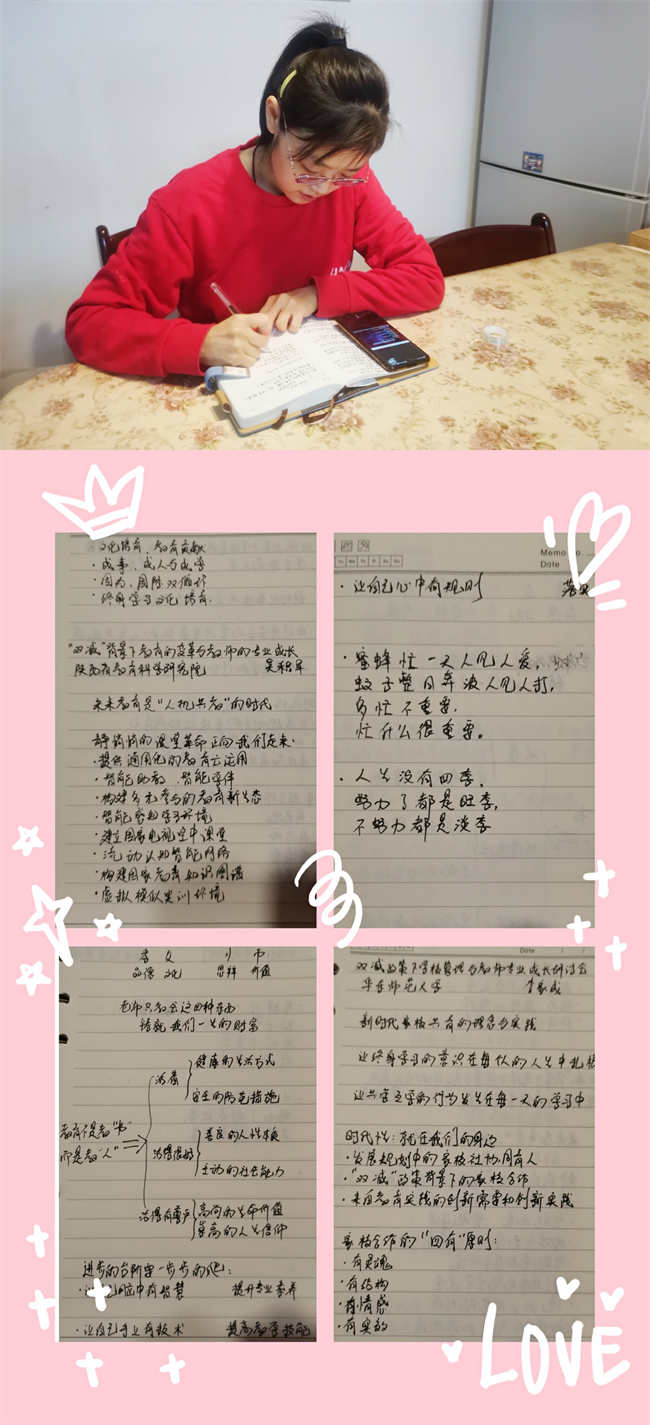 文化培育、教育贡献
· 成事、成人与成学
· 因为，国际双循环
· 终身学习文化培育
"双减"背景下教育的变革与教师的专业成长
陕西省教育科学研究院 吴积军
未来教育是"人机共教"的时代
静悄悄的课堂革命正向我们走来.
· 提供通用化的教育云运用
· 智能助教、智能学伴
· 构建多元参与的教育新生态
· 智能感知学习环境
· 建立国家电视空中课堂
· 流动认知智能网络
· 构建国家教育知识图谱
· 虚拟模似实训环境
Memo No.
Date
· 让自己心中有规则
· 蜜蜂忙一天人见人爱，
蚊子整日奔波人见人打，
多忙不重要.
忙什么很重要。
· 人生没有四季，
努力了都是旺季，
不努力都是淡季
品德 文化 思辩 价值
老师只教会这四种东西
请就我们一生的财富
教育不是教"书"
而是教"人"
活着
健康的生活方式
安全的防范措施
活得很好
善良的人性本真
主动的社会能力
活得有尊严
高尚的生命价值
崇高的人生信仰
进步的台阶要一步步的爬:
提升专业素养
· 让自己手上有技术 提高教学技能
Date
双减政策下学校管理与教师专业成长研讨会
华东师范大学 李家成
新时代家校共育的理念与实践
让终身学习的意识在每个人的人生中扎根
让共学互学的行为发生在每一天的学习中
时代性：就在我们的身边
· 发展规划中的家校社协同育人
· "双减"政策背景下的家校合作
· 来自教育实践的创新需要和创新实践
家校合作的"四有"原则：
· 有灵魂
· 有结构
· 有情感
· 有实效
LOVE